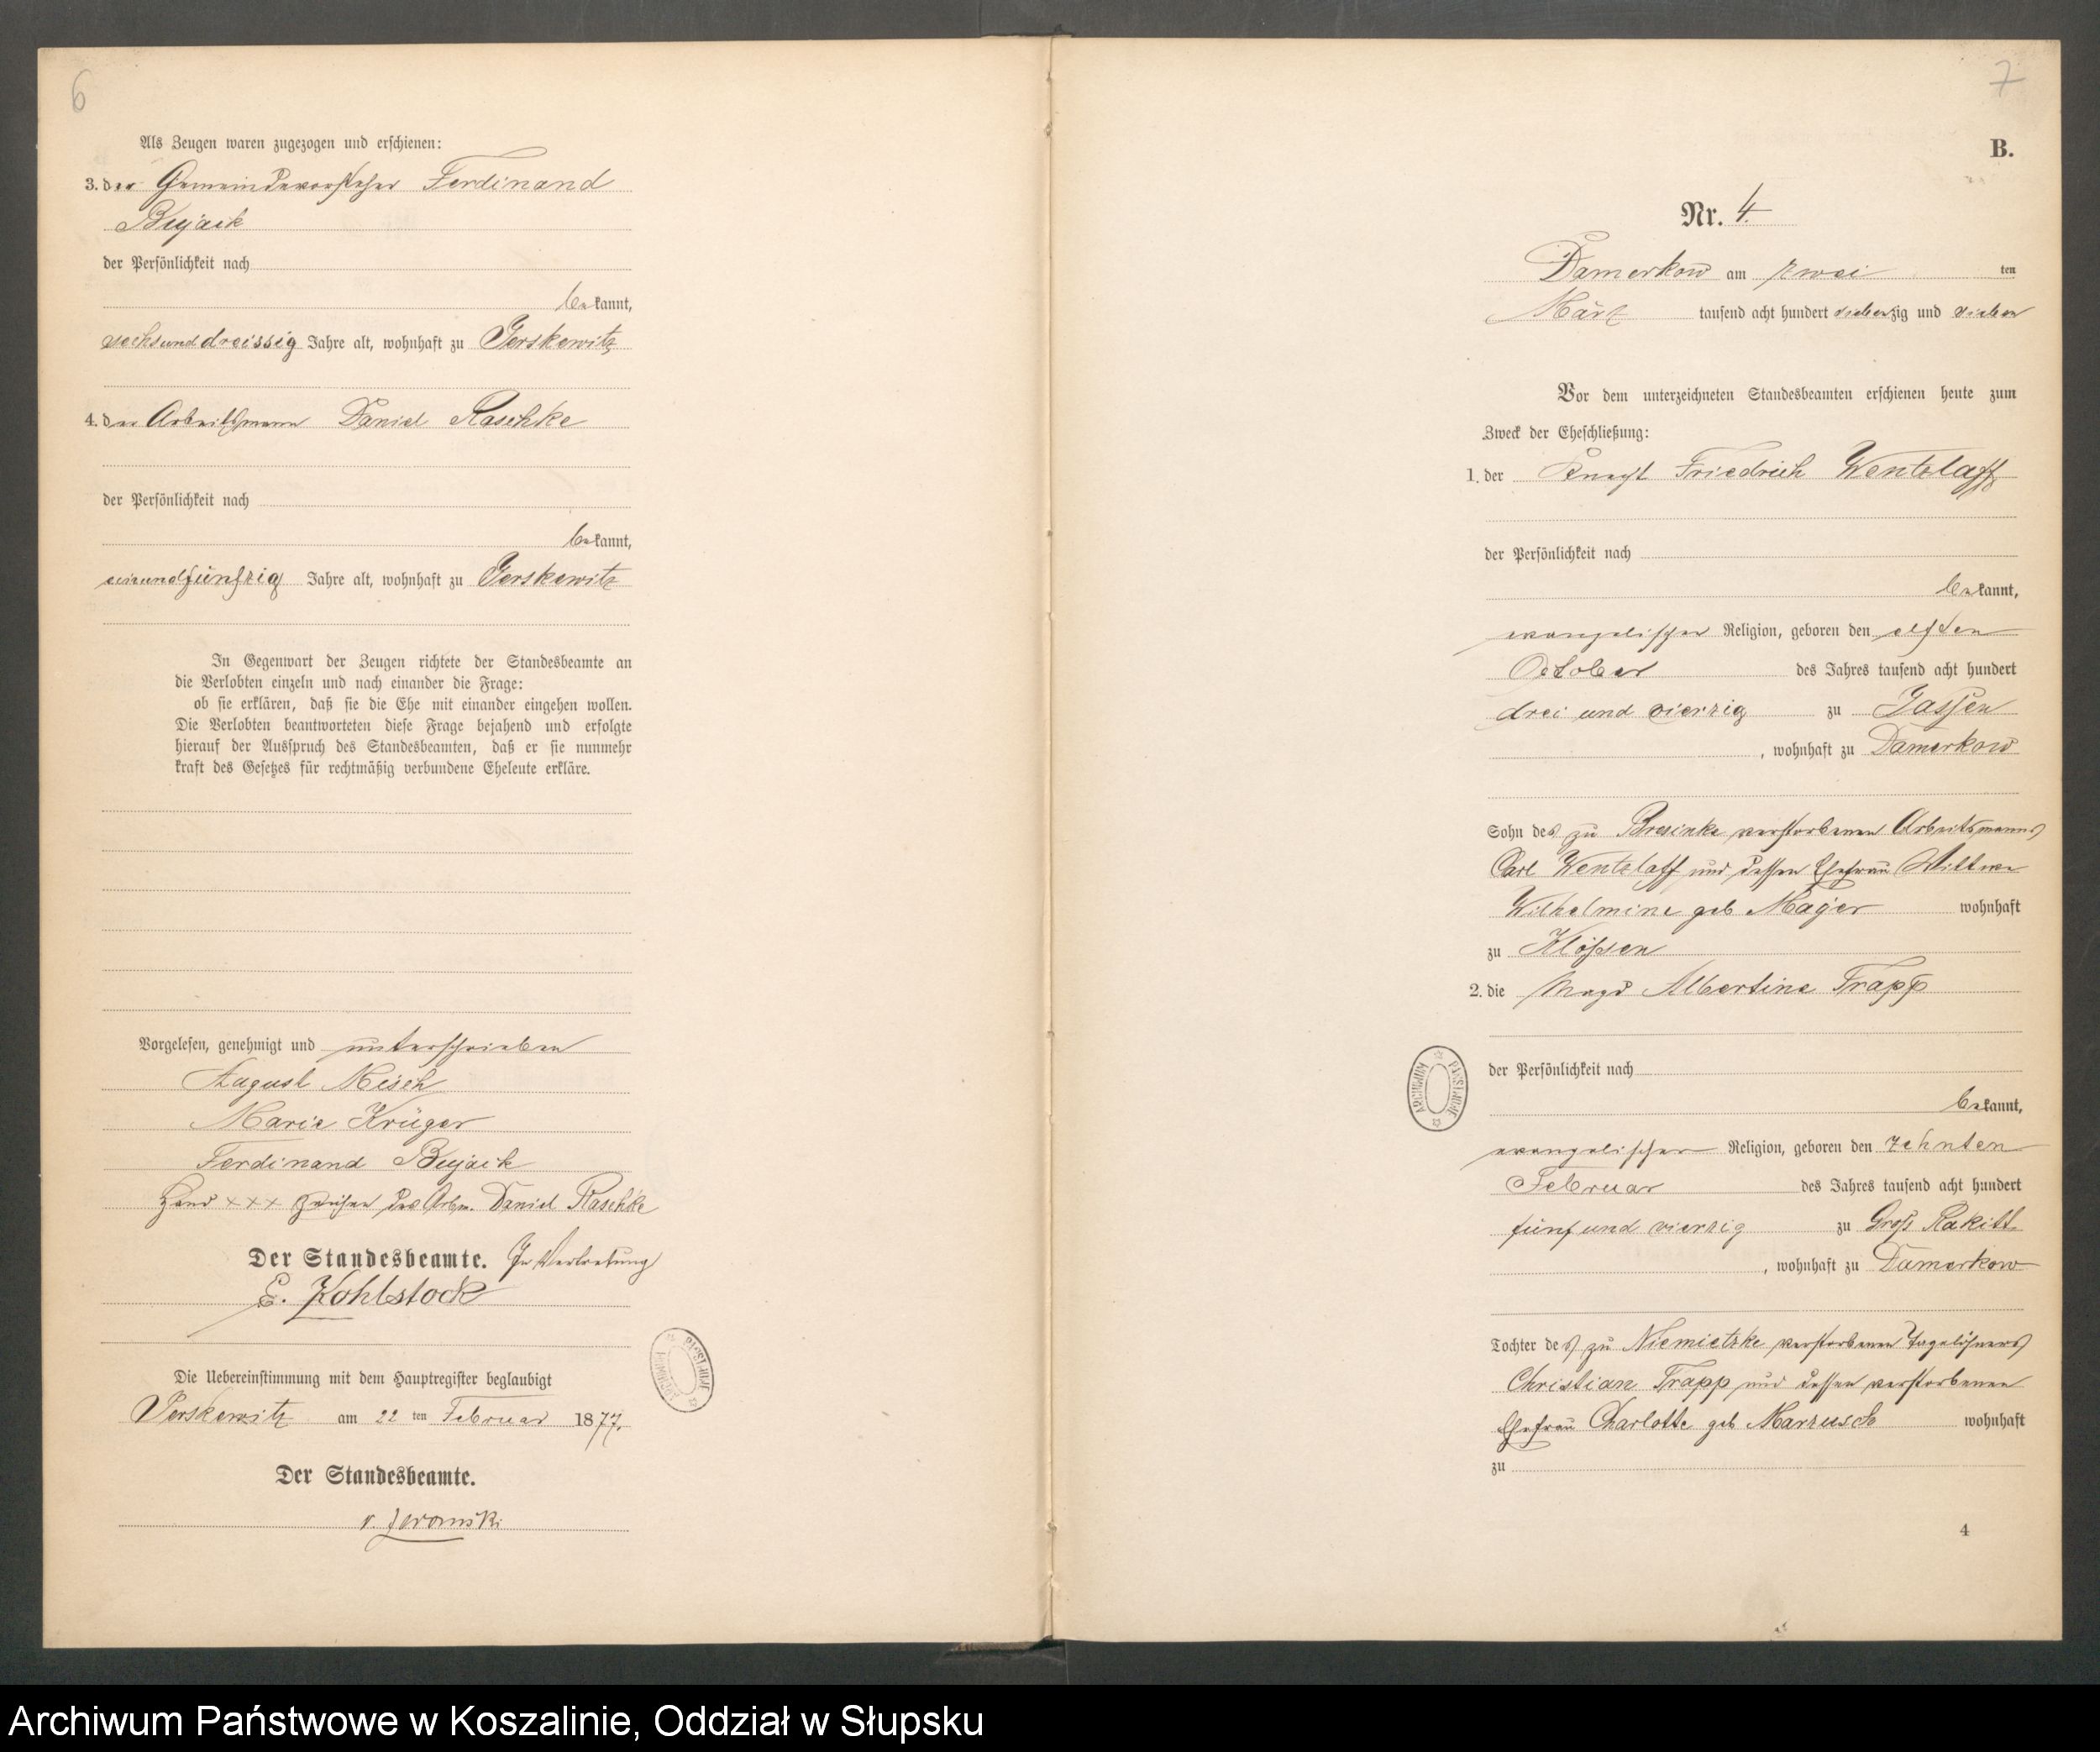 6
Als Zeugen waren zugezogen und erschienen:
3. der Gemeindevorsteher Ferdinand
Bujack
der Persönlichkeit nach
bekannt,
sechsunddreissig Jahre alt, wohnhaft zu Jerskewitz
4. der Arbeitsmann Daniel Raschke
der Persönlichkeit nach
bekannt,
einundfünfzig Jahre alt, wohnhaft zu Jerskewitz
In Gegenwart der Zeugen richtete der Standesbeamte an
die Verlobten einzeln und nach einander die Frage:
ob sie erklären, daß sie die Ehe mit einander eingehen wollen.
Die Verlobten beantworteten diese Frage bejahend und erfolgte
hierauf der Ausspruch des Standesbeamten, daß er sie nunmehr
kraft des Gesetzes für rechtmäßig verbundene Eheleute erkläre.
Vorgelesen, genehmigt und unterschrieben
August Misch
Marie Krüger
Ferdinand Bujack
Hand xxx Zeichen des Arbm. Daniel Raschke
Der Standesbeamte. In Vertretung
E. Kohlstock
Die Uebereinstimmung mit dem Hauptregister beglaubigt
Jerskewitz am 22 ten Februar 1877.
Der Standesbeamte.
ARCHIWUM PAŃSTWOWE
7
B.
Nr. 4.
Damerkow am zwei ten
März tausend acht hundert siebenzig und sieben
Vor dem unterzeichneten Standesbeamten erschienen heute zum
Zweck der Eheschließung:
1. der Knecht Friedrich Wentzlaff
der Persönlichkeit nach
bekannt,
evangelischer Religion, geboren den elften
October des Jahres tausend acht hundert
drei und vierzig zu Jassen
, wohnhaft zu Damerkow
Sohn des zu Bresinke verstorbenen Arbeitsmanns
Carl Wentzlaff und dessen Ehefrau Wittwe
Wilhelmine geb Mager wohnhaft
zu Klößen
2. die Magd Albertine Trapp
der Persönlichkeit nach
bekannt,
evangelischer Religion, geboren den zehnten
Februar des Jahres tausend acht hundert
fünf und vierzig zu Groß Rakitt
, wohnhaft zu Damerkow
Tochter des zu Niemietzke verstorbenen Tagelöhners
Christian Trapp und dessen verstorbenen
Ehefrau Charlotte geb wohnhaft
zu
4
ARCHIWUM PAŃSTWOWE
Archiwum Państwowe w Koszalinie, Oddział w Słupsku